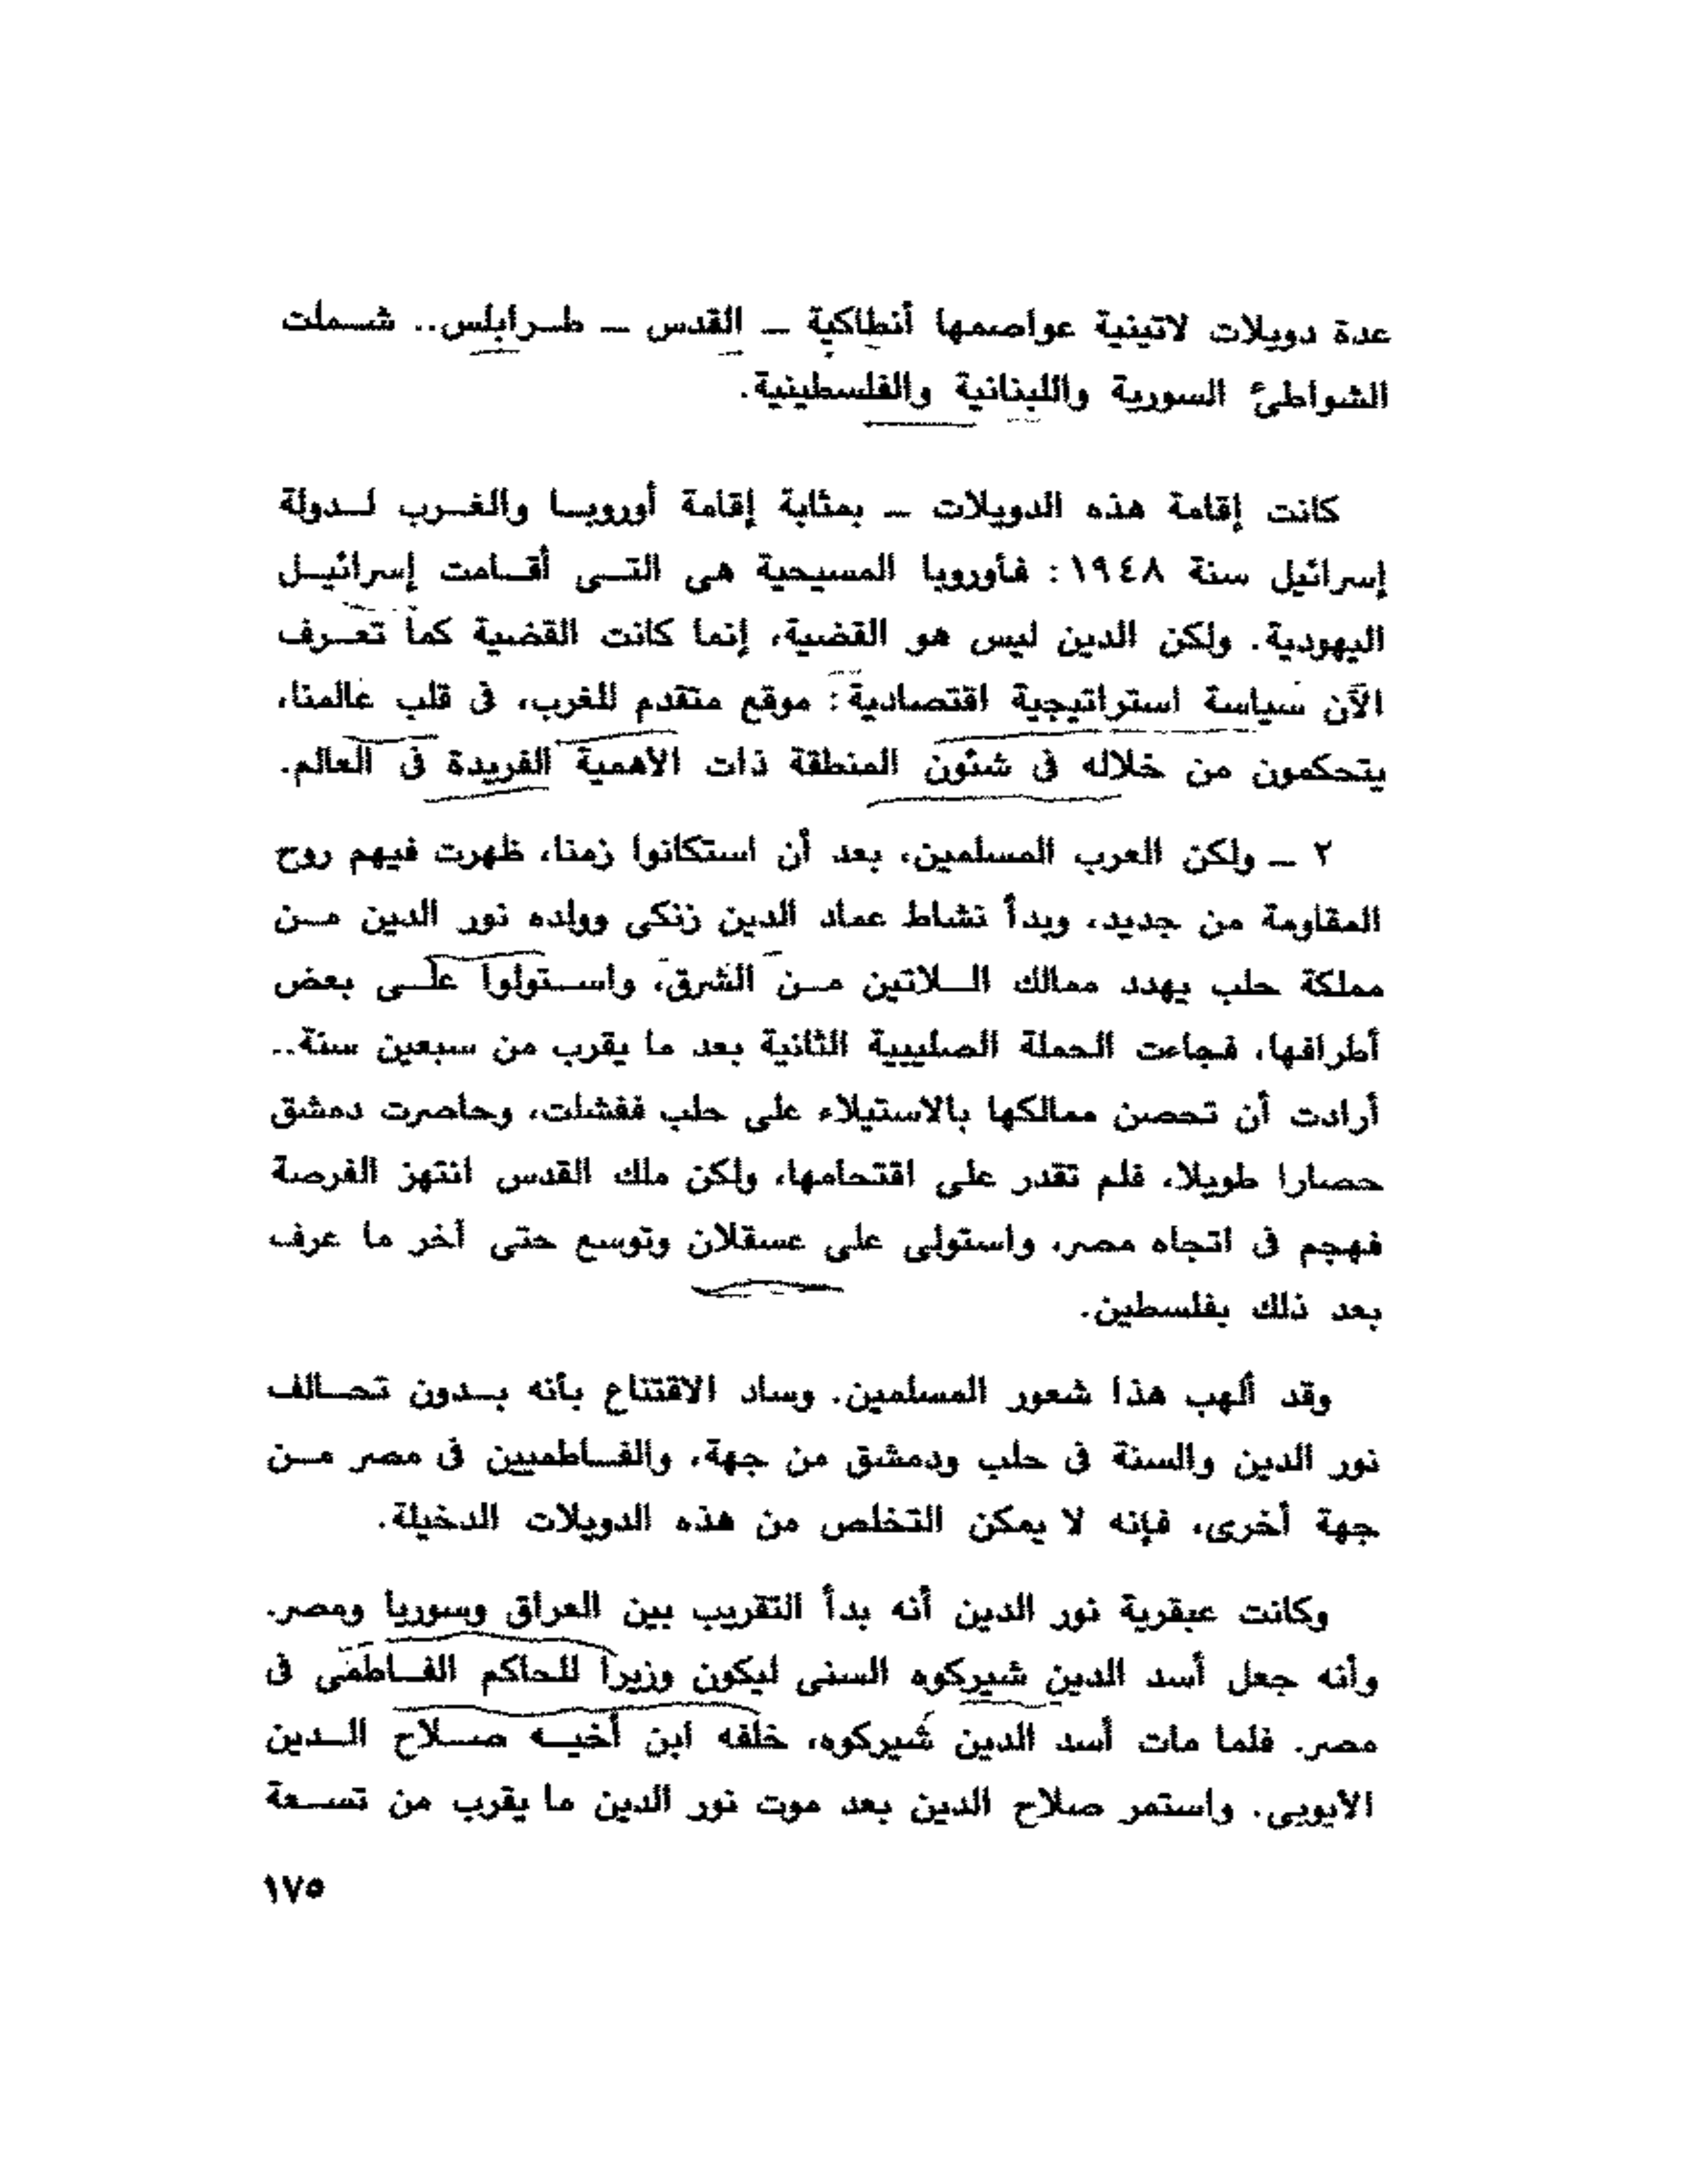 عدة دويلات لاتينية عواصمها أنطاكية ـ القدس ـ طرابلس.. شملت
الشواطئ السورية واللبنانية والفلسطينية.
كانت إقامة هذه الدويلات ـ بمثابة إقامة أوروبا والغرب لدولة
إسرائيل سنة ١٩٤٨ : فأوروبا المسيحية هى التى أقامت إسرائيل
اليهودية. ولكن الدين ليس هو القضية، إنما كانت القضية كما تعرف
الآن سياسة استراتيجية اقتصادية : موقع متقدم للغرب، فى قلب عالمنا،
يتحكمون من خلاله فى شئون المنطقة ذات الأهمية الفريدة فى العالم.
٢ ـ ولكن العرب المسلمين، بعد أن استكانوا زمنا، ظهرت فيهم روح
المقاومة من جديد، وبدأ نشاط عماد الدين زنكى وولده نور الدين من
مملكة حلب يهدد ممالك اللاتين من الشرق، واستولوا على بعض
أطرافها، فجاءت الحملة الصليبية الثانية بعد ما يقرب من سبعين سنة..
أرادت أن تحصن ممالكها بالاستيلاء على حلب ففشلت، وحاصرت دمشق
حصارا طويلا، فلم تقدر على اقتحامها، ولكن ملك القدس انتهز الفرصة
فهجم فى اتجاه مصر، واستولى على عسقلان وتوسع حتى آخر ما عرف
بعد ذلك بفلسطين.
وقد ألهب هذا شعور المسلمين. وساد الاقتناع بأنه بدون تحالف
نور الدين والسنة فى حلب ودمشق من جهة، والفاطميين فى مصر من
جهة أخرى، فإنه لا يمكن التخلص من هذه الدويلات الدخيلة.
وكانت عبقرية نور الدين أنه بدأ التقريب بين العراق وسوريا ومصر.
وأنه جعل أسد الدين شيركوه السنى ليكون وزيرا للحاكم الفاطمى فى
مصر. فلما مات أسد الدين شيركوه، خلفه ابن أخيه صلاح الدين
الأيوبى. واستمر صلاح الدين بعد موت نور الدين ما يقرب من تسعة
١٧٥